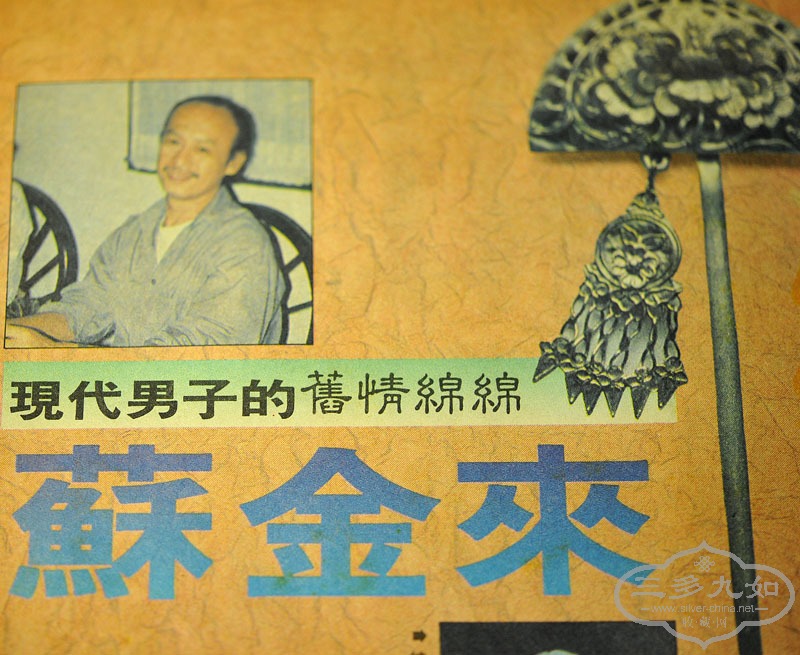 現代男子的舊情綿綿
蘇金來
三多九如
www.silver-china.net
收藏网